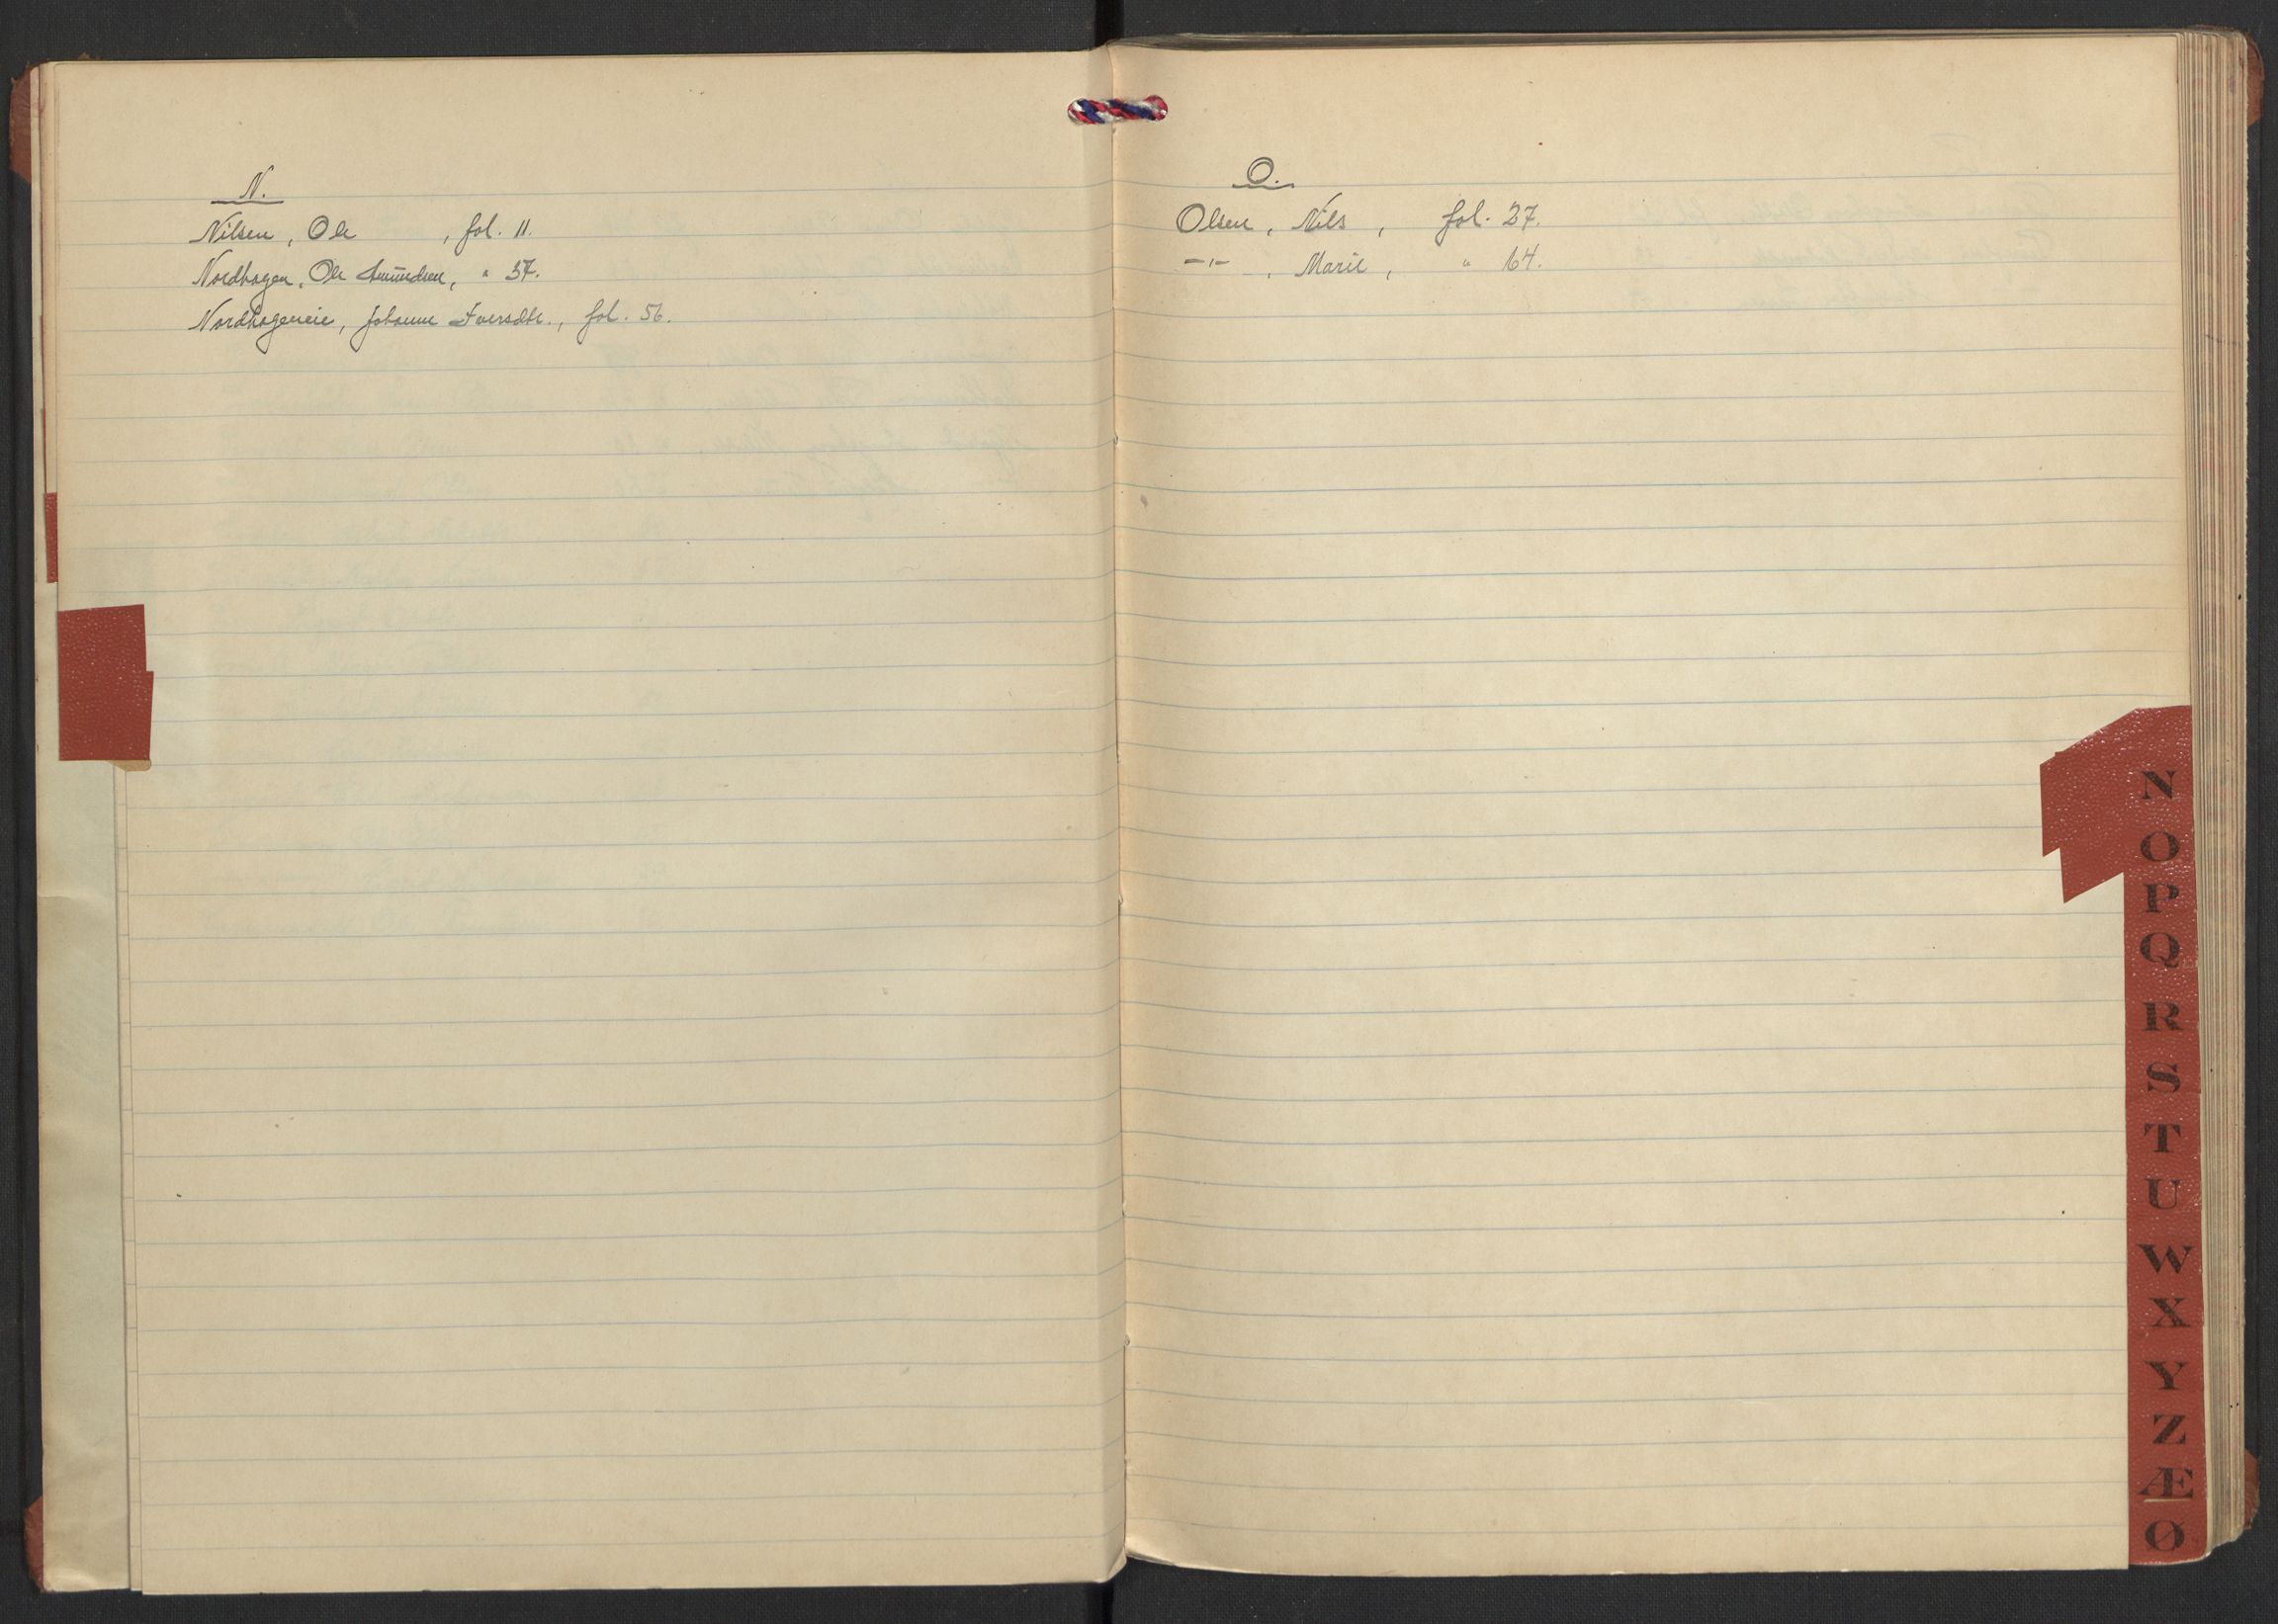 N.
Nilsen, Ole , fol. 11.
Nordhagen, Ole Amundsen, " 37.
Nordhageneie, Johanne Iversdtr., fol. 56.
O.
Olsen, Nils , fol. 27.
-"- , Marie , " 64.
N
O
P
Q
R
S
T
U
W
X
Y
Z
Æ
Ø